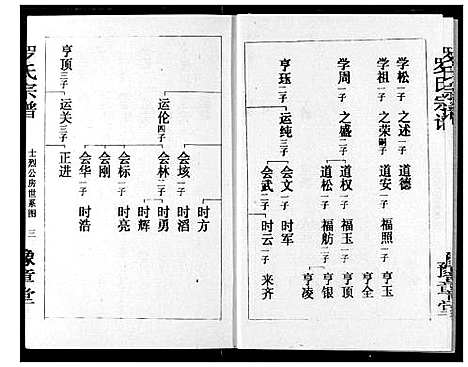 罗氏宗谱
豫章堂
学松一子 之述一子 道德
学祖一子 之荣嗣子 道安一子 福照二子 亨玉
亨全
学周一子 之盛二子 道权一子 福玉一子 亨顶
道松一子 福舫二子 亨银
亨凌
亨珏二子 运纯三子 会文一子 时军
会武二子 时云一子 来齐
亨顶三子 运伦四子 会垓一子 时方
时滔
会林二子 时勇
时辉
会标一子 时亮
会刚
运关三子 会华一子 时浩
正进
罗氏宗谱
士烈公房世系图 三
豫章堂